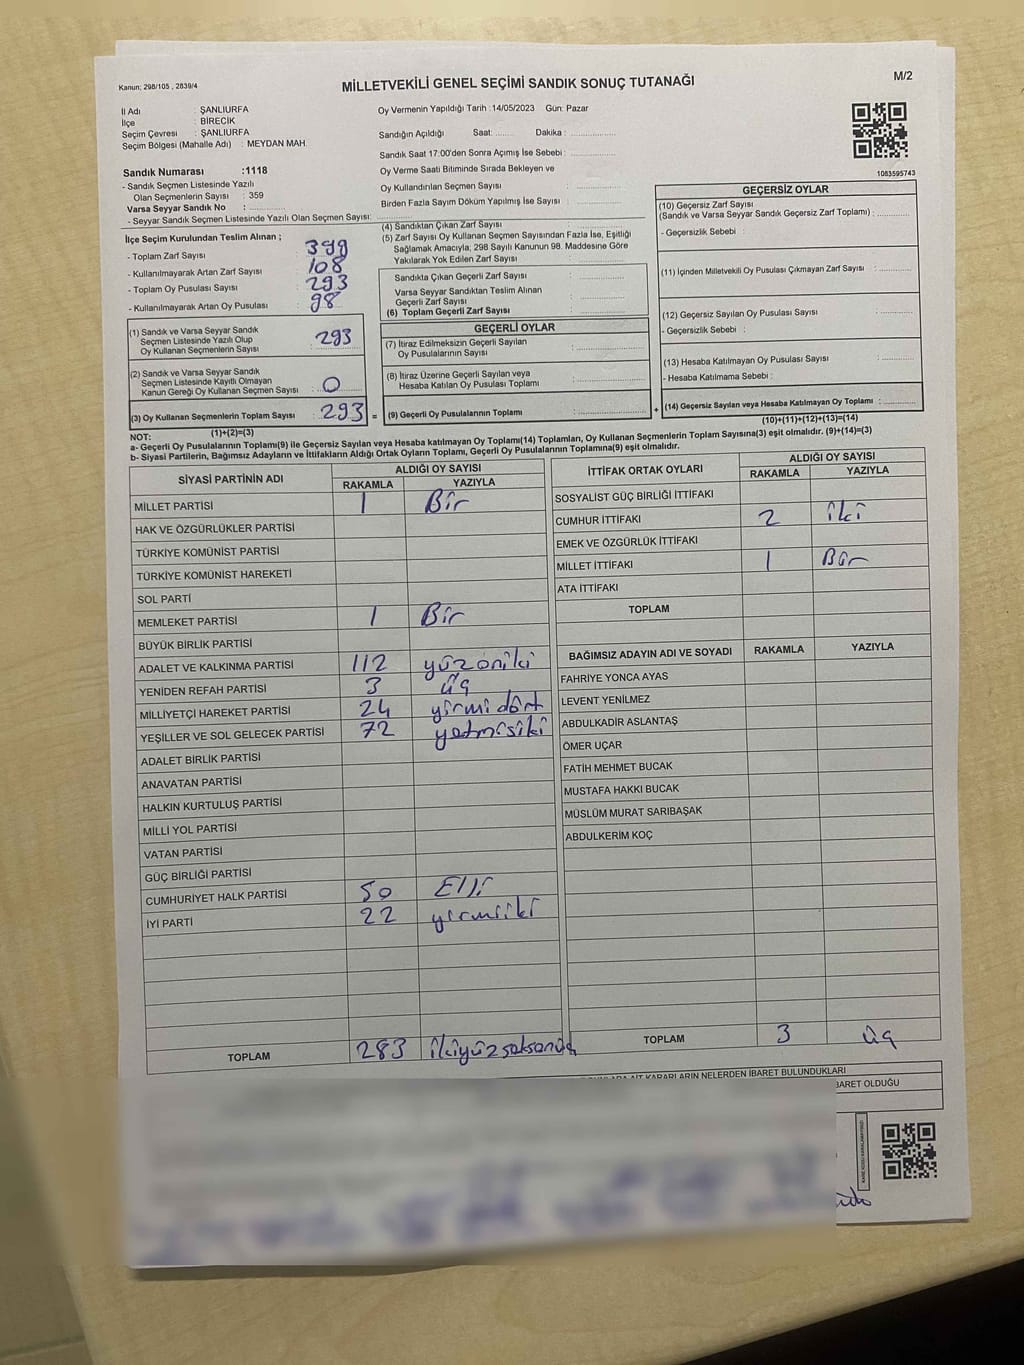 Kanun; 298/105 , 2839/4
MİLLETVEKİLİ GENEL SEÇİMİ SANDIK SONUÇ TUTANAĞI
M/2
İl Adı : ŞANLIURFA
İlçe : BİRECİK
Seçim Çevresi : ŞANLIURFA
Seçim Bölgesi (Mahalle Adı) : MEYDAN MAH.
Oy Vermenin Yapıldığı Tarih :14/05/2023 Gün: Pazar
Sandığın Açıldığı Saat: ...... Dakika : ..................
Sandık Saat 17:00'den Sonra Açımış İse Sebebi : ..................
Oy Verme Saati Bitiminde Sırada Bekleyen ve
Oy Kullandırılan Seçmen Sayısı : ..................
Birden Fazla Sayım Döküm Yapılmış İse Sayısı : ..................
1083595743
Sandık Numarası :1118
- Sandık Seçmen Listesinde Yazılı
Olan Seçmenlerin Sayısı : 359
Varsa Seyyar Sandık No : ..................
- Seyyar Sandık Seçmen Listesinde Yazılı Olan Seçmen Sayısı: ..................
İlçe Seçim Kurulundan Teslim Alınan ;
- Toplam Zarf Sayısı : 399
- Kullanılmayarak Artan Zarf Sayısı : 108
- Toplam Oy Pusulası Sayısı : 293
- Kullanılmayarak Artan Oy Pusulası : 98
(1) Sandık ve Varsa Seyyar Sandık
Seçmen Listesinde Yazılı Olup
Oy Kullanan Seçmenlerin Sayısı : 293
(2) Sandık ve Varsa Seyyar Sandık
Seçmen Listesinde Kayıtlı Olmayan
Kanun Gereği Oy Kullanan Seçmen Sayısı : 0
(3) Oy Kullanan Seçmenlerin Toplam Sayısı : 293 =
(1)+(2)=(3)
(4) Sandıktan Çıkan Zarf Sayısı : ..................
(5) Zarf Sayısı Oy Kullanan Seçmen Sayısından Fazla İse, Eşitliği
Sağlamak Amacıyla; 298 Sayılı Kanunun 98. Maddesine Göre
Yakılarak Yok Edilen Zarf Sayısı : ..................
Sandıkta Çıkan Geçerli Zarf Sayısı : ..................
Varsa Seyyar Sandıktan Teslim Alınan
Geçerli Zarf Sayısı : ..................
(6) Toplam Geçerli Zarf Sayısı : ..................
GEÇERLİ OYLAR
(7) İtiraz Edilmeksizin Geçerli Sayılan
Oy Pusulalarının Sayısı : ..................
(8) İtiraz Üzerine Geçerli Sayılan veya
Hesaba Katılan Oy Pusulası Toplamı : ..................
(9) Geçerli Oy Pusulalarının Toplamı : .................. +
GEÇERSİZ OYLAR
(10) Geçersiz Zarf Sayısı
(Sandık ve Varsa Seyyar Sandık Geçersiz Zarf Toplamı) : ........
- Geçersizlik Sebebi :
(11) İçinden Milletvekili Oy Pusulası Çıkmayan Zarf Sayısı : ........
(12) Geçersiz Sayılan Oy Pusulası Sayısı : ........
- Geçersizlik Sebebi :
(13) Hesaba Katılmayan Oy Pusulası Sayısı : ........
- Hesaba Katılmama Sebebi :
(14) Geçersiz Sayılan veya Hesaba Katılmayan Oy Toplamı : ........
(10)+(11)+(12)+(13)=(14)
NOT:
a- Geçerli Oy Pusulalarının Toplamı(9) ile Geçersiz Sayılan veya Hesaba katılmayan Oy Toplamı(14) Toplamları, Oy Kullanan Seçmenlerin Toplam Sayısına(3) eşit olmalıdır. (9)+(14)=(3)
b- Siyasi Partilerin, Bağımsız Adayların ve İttifakların Aldığı Ortak Oyların Toplamı, Geçerli Oy Pusulalarının Toplamına(9) eşit olmalıdır.
SİYASİ PARTİNİN ADI ALDIĞI OY SAYISI
RAKAMLA YAZIYLA
MİLLET PARTİSİ 1 Bir
HAK VE ÖZGÜRLÜKLER PARTİSİ
TÜRKİYE KOMÜNİST PARTİSİ
TÜRKİYE KOMÜNİST HAREKETİ
SOL PARTİ
MEMLEKET PARTİSİ 1 Bir
BÜYÜK BİRLİK PARTİSİ
ADALET VE KALKINMA PARTİSİ 112 yüzoniki
YENİDEN REFAH PARTİSİ 3 üç
MİLLİYETÇİ HAREKET PARTİSİ 24 yirmi dört
YEŞİLLER VE SOL GELECEK PARTİSİ 72 yetmişiki
ADALET BİRLİK PARTİSİ
ANAVATAN PARTİSİ
HALKIN KURTULUŞ PARTİSİ
MİLLİ YOL PARTİSİ
VATAN PARTİSİ
GÜÇ BİRLİĞİ PARTİSİ
CUMHURİYET HALK PARTİSİ 50 Elli
İYİ PARTİ 22 yirmiiki
TOPLAM 283 ikiyüzseksenüç
İTTİFAK ORTAK OYLARI ALDIĞI OY SAYISI
RAKAMLA YAZIYLA
SOSYALİST GÜÇ BİRLİĞİ İTTİFAKI
CUMHUR İTTİFAKI 2 iki
EMEK VE ÖZGÜRLÜK İTTİFAKI
MİLLET İTTİFAKI 1 Bir
ATA İTTİFAKI
TOPLAM
BAĞIMSIZ ADAYIN ADI VE SOYADI RAKAMLA YAZIYLA
FAHRİYE YONCA AYAS
LEVENT YENİLMEZ
ABDULKADİR ASLANTAŞ
ÖMER UÇAR
FATİH MEHMET BUCAK
MUSTAFA HAKKI BUCAK
MÜSLÜM MURAT SARIBAŞAK
ABDULKERİM KOÇ
TOPLAM 3 üç
KARARLARIN NELERDEN İBARET BULUNDUKLARI
BARET OLDUĞU